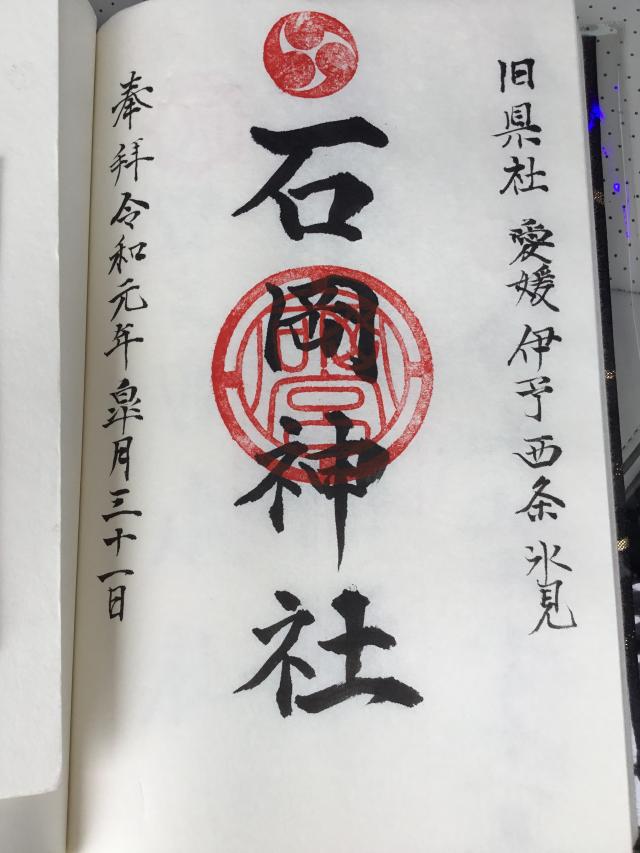 旧県社 愛媛伊予西条氷見
石岡神社
奉拝令和元年皐月三十一日